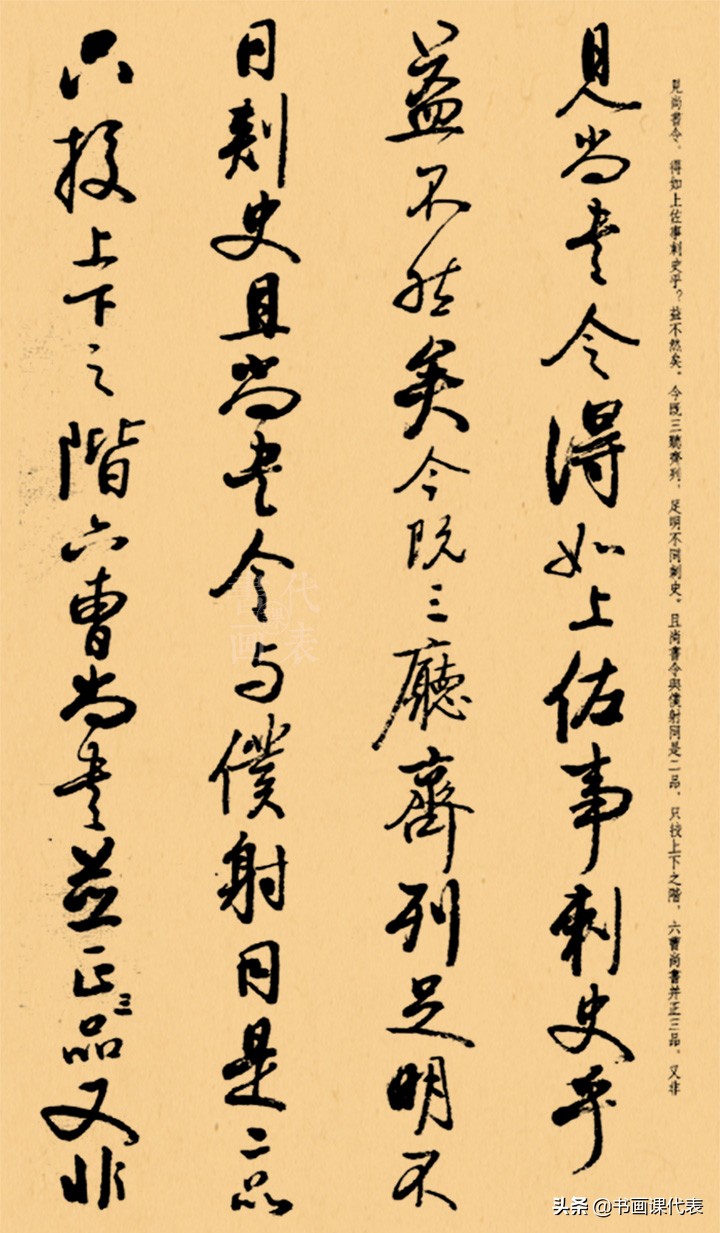 見尚書令、得如上佐事刺史乎？益不然矣。令既三聽齊列，足明不同刺史。且尚書令與僕射同是二品，只校上下之階，六曹尚書并正三品，又非
見尚書令得如上佐事刺史乎
益不然矣今既三廳齊列足明不
同刺史且尚書令与僕射同是二品
只校上下之階六曹尚書並正三品又非
头条 @书画课代表